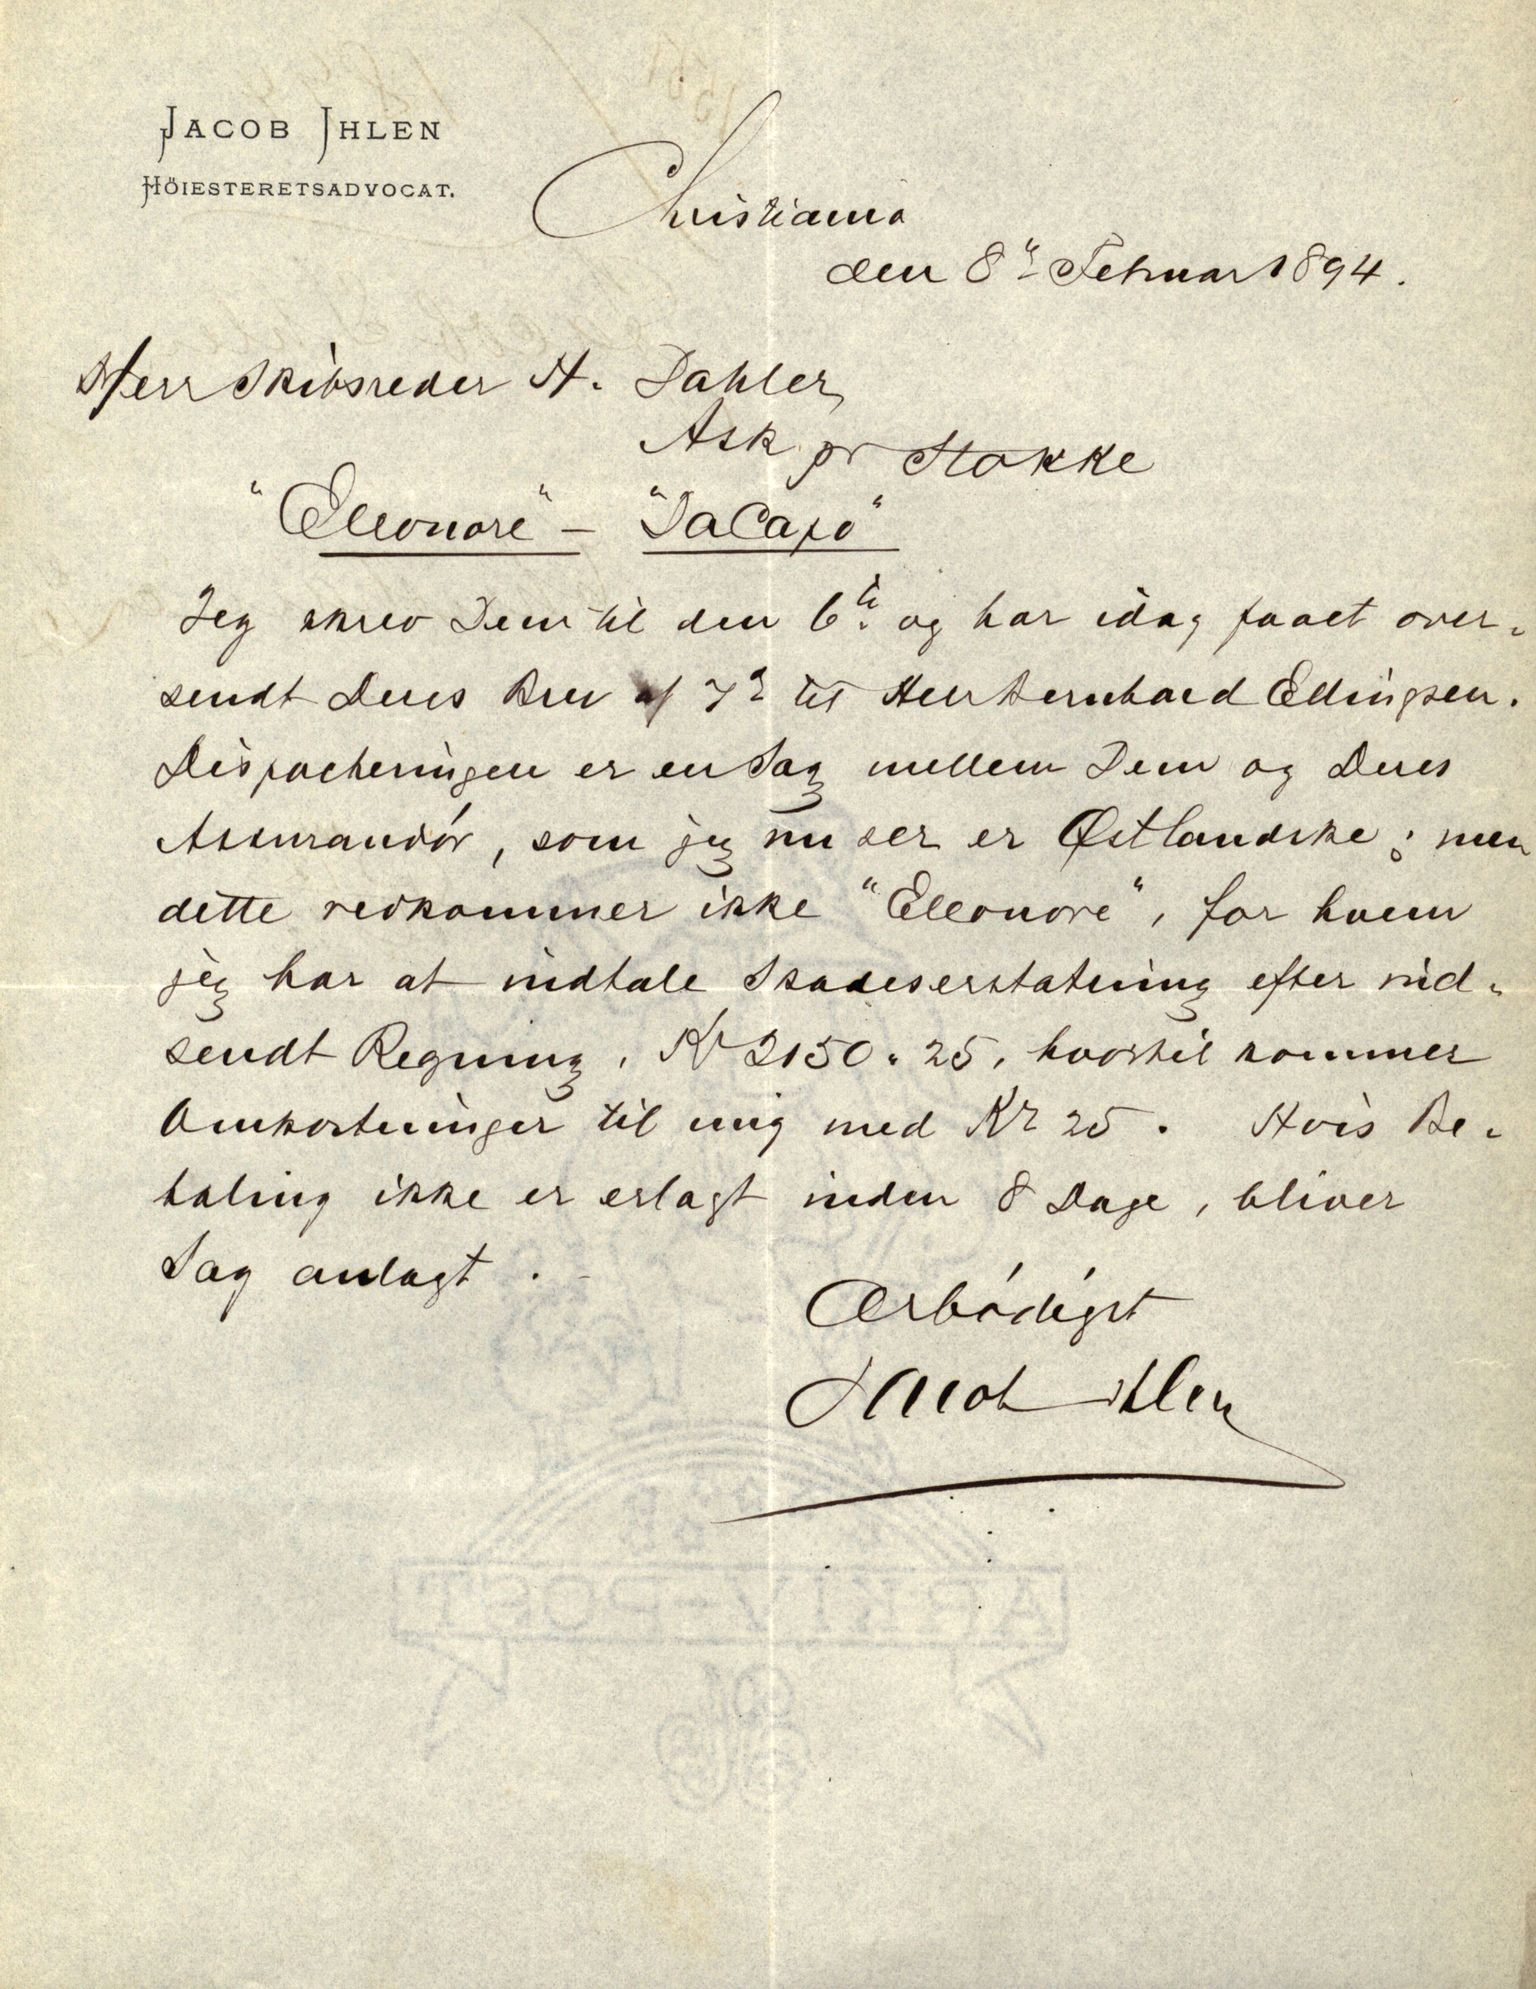 JACOB IHLEN
HÖIESTERETSADVOCAT.
Christiania
den 8de Februar 1894.
Herr Skibsreder H. Dahler,
Ask pr Stokke
"Eleonore" – "DaCapo"
Jeg skrev Dem til den 6te og har idag faaet over-
sendt Deres Brev af 7de til Herr Bernhard Ellingsen.
Dispacheringen er en Sag mellem Dem og Deres
Assurandör, som jeg nu ser er Østlandske; men
dette vedkommer ikke "Eleonore", for hvem
jeg har at indtale Skadeserstatning efter ind-
sendt Regning, Kr 2150.25, hvortil kommer
Omkostninger til mig med Kr 25. Hvis Be-
taling ikke er erlagt inden 8 Dage, bliver
Sag anlagt.
Ærbödigst
Jacob Ihlen
ARKIVEPOST